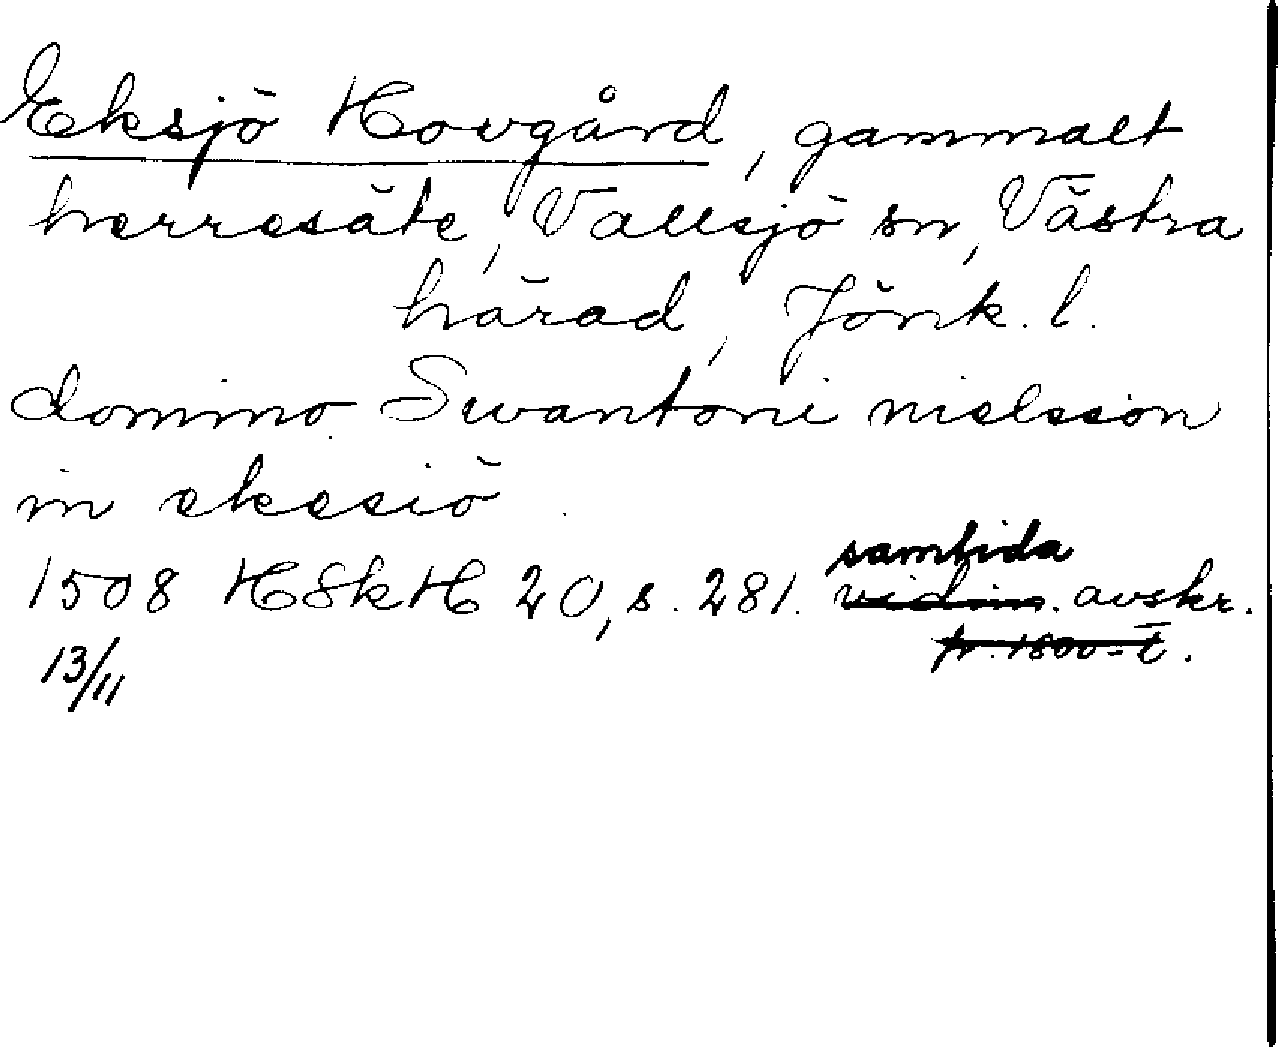 Eksjö Hovgård, gammalt
herresäte, Vallsjö sn, Västra
härad, Jönk. l.
domino Swantoni nielsson
in ekesiö.
1508 HSkH 20, s. 281. samtida vidim. avskr.
fr. 1800-t.
13/11